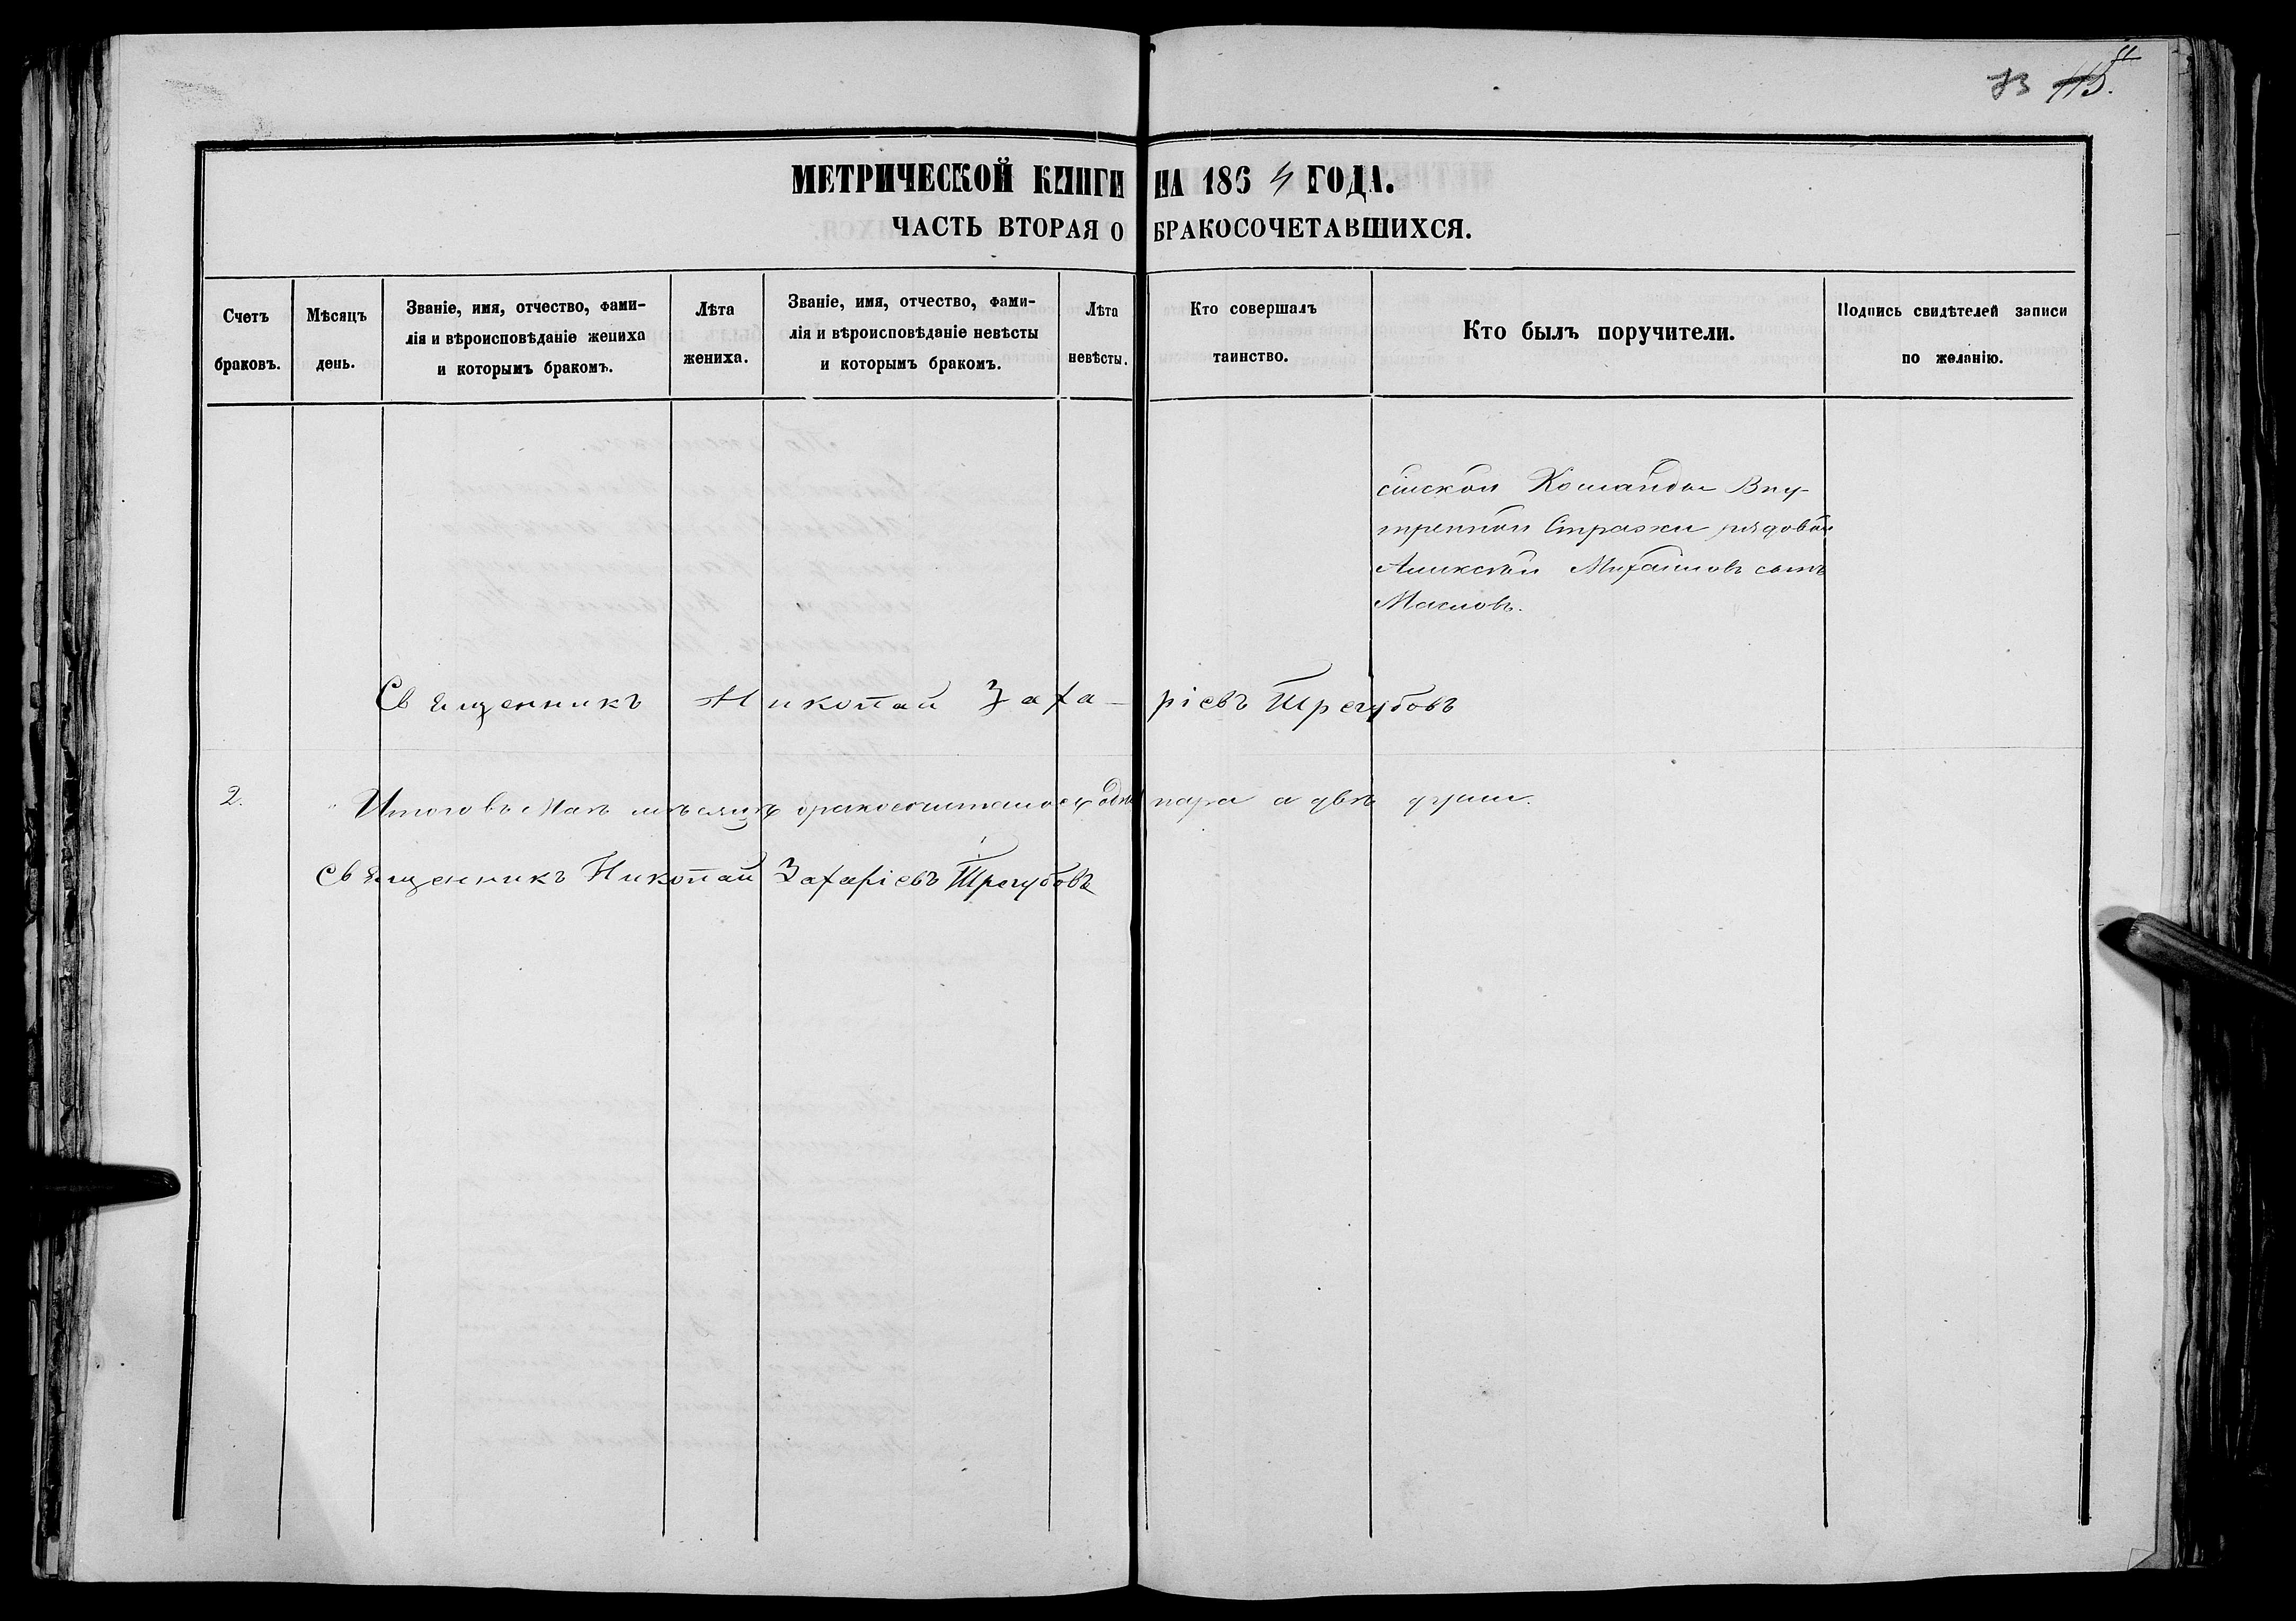 73 115.
МЕТРИЧЕСКОЙ КНИГИ НА 1864 ГОДА.
ЧАСТЬ ВТОРАЯ О БРАКОСОЧЕТАВШИХСЯ.
Счетъ браковъ.
Мѣсяцъ день.
Званіе, имя, отчество, фами-
лія и вѣроисповѣданіе жениха
и которымъ бракомъ.
Лѣта жениха.
Званіе, имя, отчество, фами-
лія и вѣроисповѣданіе невѣсты
и которымъ бракомъ.
Лѣта невѣсты.
Кто совершалъ таинство.
Кто былъ поручители.
Подпись свидѣтелей записи
по желанію.
Команды Вну-
тренней Стражи рядовой
Алексѣй Михайловъ сынъ
Масловъ.
Священникъ Николай Заха-ріевъ Трегубовъ
2. Итого въ Маѣ мѣсяцѣ бракосочеталось одна пара а двѣ души.
Священникъ Николай Захаріевъ Трегубовъ